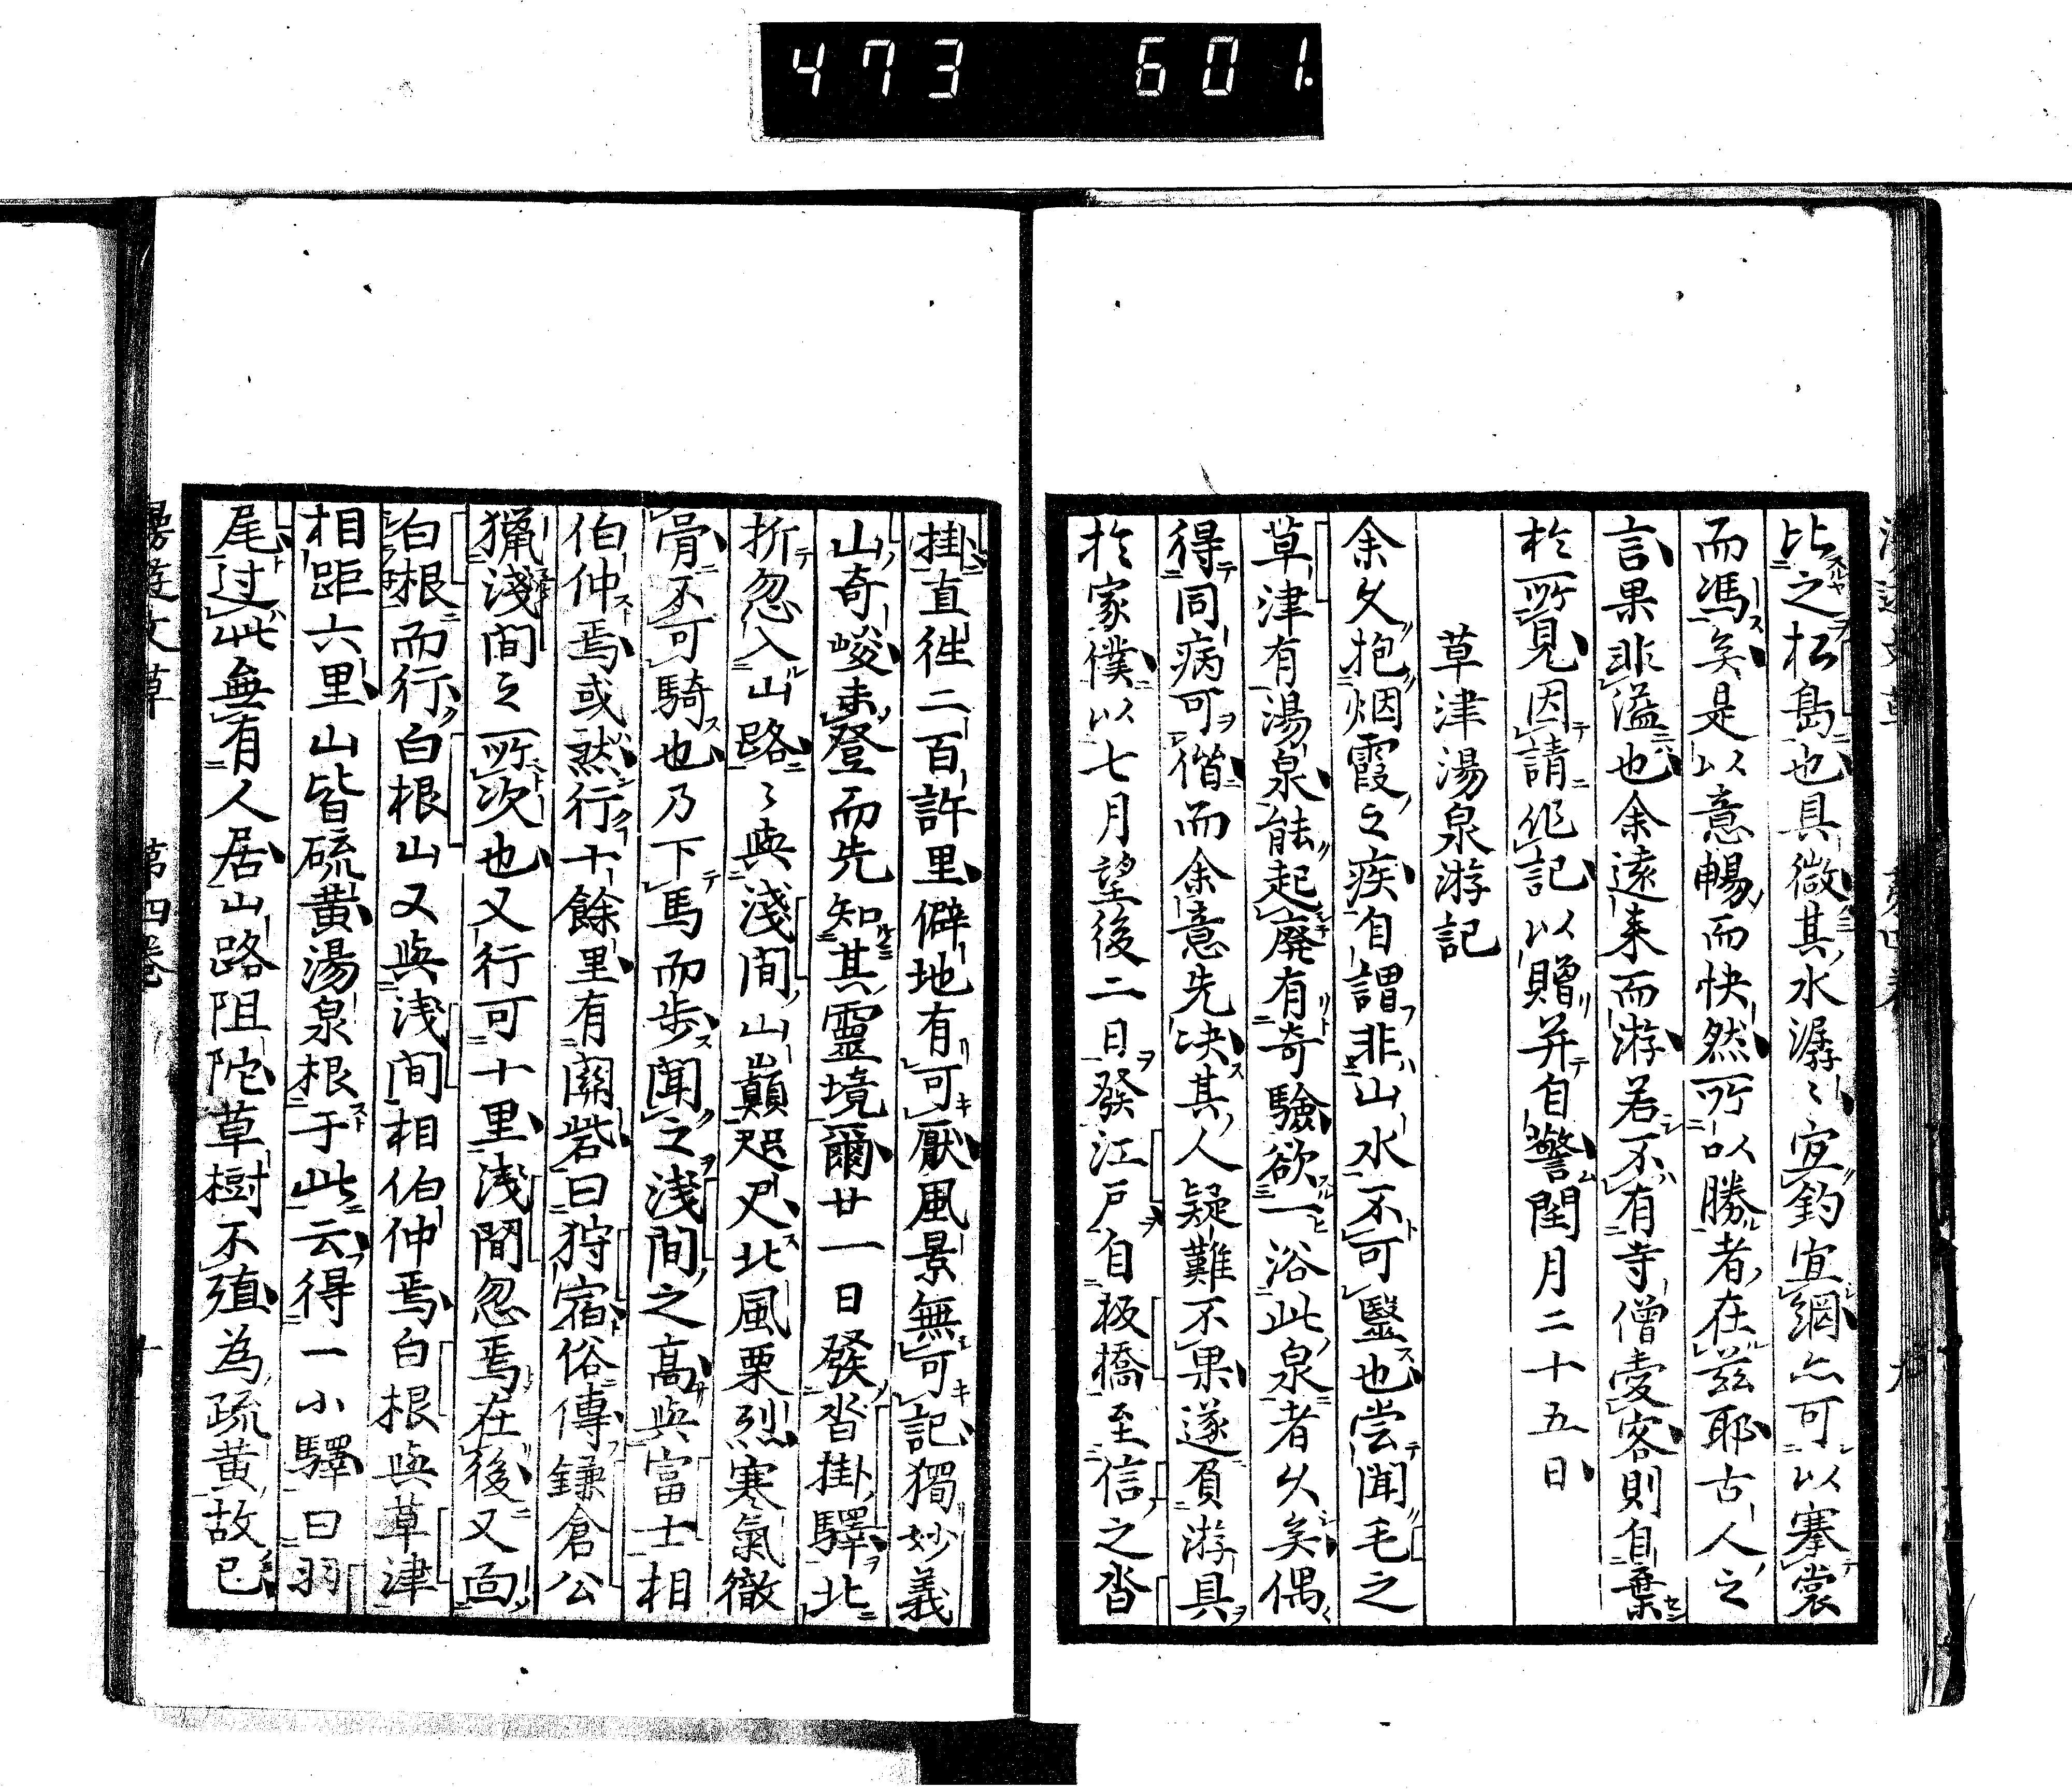 473 601.
比之松島也具微其水潺〻宜釣宜網亦可以搴裳
而馮矣是以意暢而快然所以勝者在茲耶古人之
言果非溢也余遠来而游若不有寺僧愛客則自棄
於所覓因請作記以贈并自警閏月二十五日
草津湯泉游記
余久抱烟霞之疾自謂非山水不可毉也嘗聞毛之
草津有湯泉能起廢有奇驗欲一浴此泉者久矣偶
得同病可偕而余意先决其人疑難不果遂負游具
於家僕以七月望後二日發江戸自板橋至信之沓
掛直徃二百許里僻地有可厭風景無可記獨妙義
山奇峻未登而先知其靈境爾廿一日發沓掛驛北
折忽入山路〻與淺間山巓咫尺北風栗烈寒氣徹
骨不可騎也乃下馬而歩聞之淺間之高與富士相
伯仲焉或然行十餘里有關砦曰狩宿俗傳鎌倉公
獵淺間之所次也又行可十里浅間忽焉在後又向
白根而行白根山又與浅間相伯仲焉白根與草津
相距六里山皆硫黄湯泉根于此云得一小驛曰羽
尾过此無有人居山路阻陀草樹不殖為疏黄故已
漫遊文草 第四卷